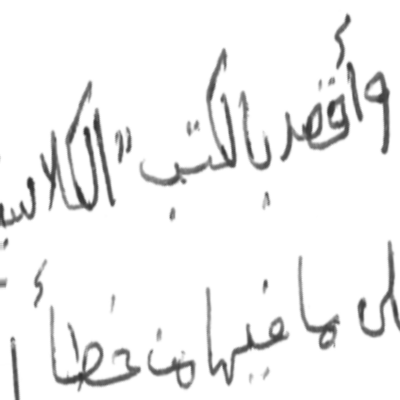 وأقصد بالكتب "الكلاسيـ
ما فيها من خطأ